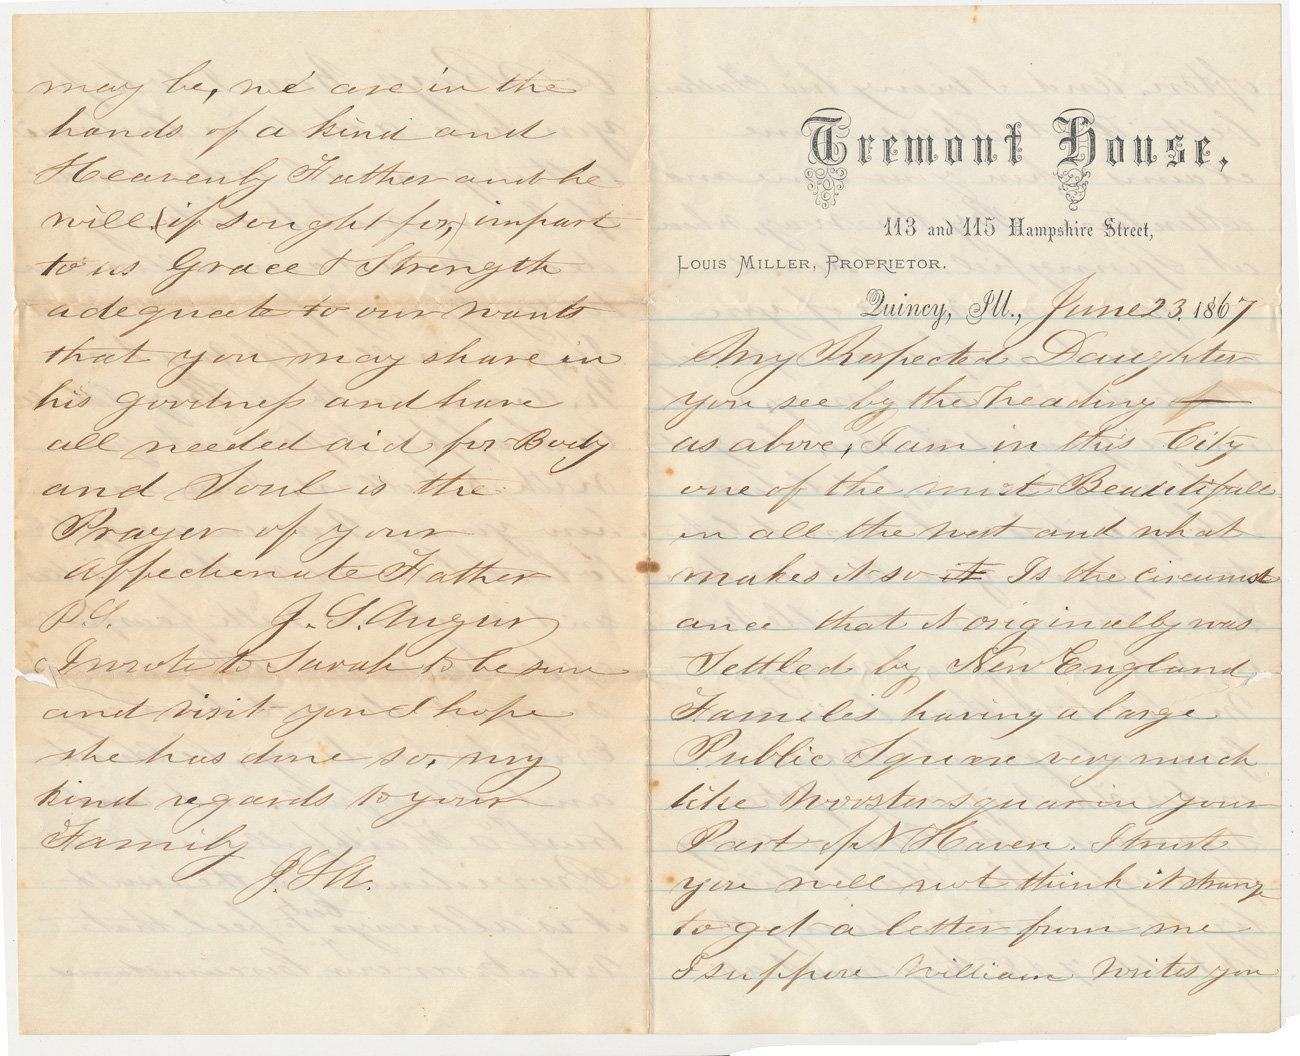 may be, we are in the
hands of a kind and
Heavenly Father and he
will (if sought for,) impart
to us Grace & Strength
adequate to our wants
that you may share in
his goodness and have
all needed aid for Body
and Soul is the
Prayer of your
affectionate Father
P.S. J. S. Angur
I wrote to Sarah to be sure
and visit you I hope
she has done so, my
kind regards to your
Family
J.S.A.
Tremont House,
113 and 115 Hampshire Street,
LOUIS MILLER, PROPRIETOR.
Quincy, Ill., June 23. 1867
My Respected Daughter
you see by the heading
as above, I am in this City
one of the most Beautifull
in all the west and what
makes it so it Is the circumst
ance that it originally was
Settled by New England
Familes having a large
Public Square very much
like Wooster squar in your
Part of N Haven. I trust
you will not think it strange
to get a letter from me
I suppose William writes you